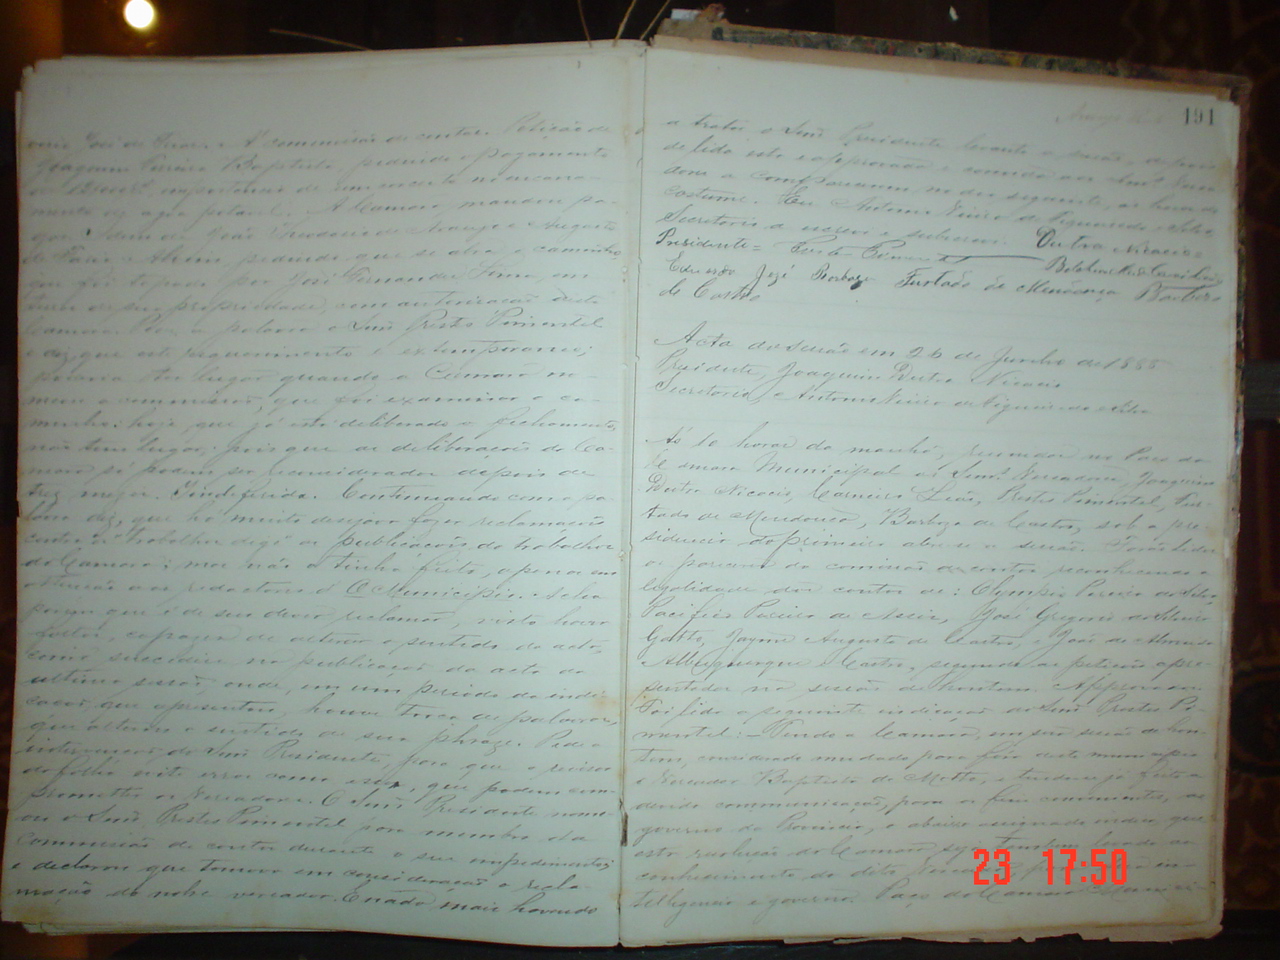 José de A commissão de contas. Petição de
Joaquim Pereira Baptista, pedindo o pagamento
importancia de um
mento de agua potavel. A Camara mandou pa-
gar. Idem de João Theodorio de Araujo e Augusto
de Faria e pedindo que se abra o caminho
que foi tapado por José Fernandes Lima, em
de sua propriedade, com autorização desta
Camara. Pede a palavra o Snr. Prestes Pimentel
e diz, que este requerimento é extemporaneo;
poderia ter lugar quando a Camara no-
meou a commissão, que foi examinar o ca-
minho: hoje, que já está deliberado o fechamento,
não tem lugar; pois que as deliberações da Ca-
mara só podem ser reconsideradas depois de
trez mezes. Indeferida. Continuando com a pa-
lavra diz, que ha muito desejava fazer reclamações
contra o "trabalho digo" as publicações dos trabalhos
da Camara; mas não o tinha feito, apenas em
attenção a os redactores d' O Municipio. Acha
porem que é de seu dever reclamar, visto haver
faltas, capazes de alterar o sentido do acto,
como succedeu na publicação da acta da
ultima sessão, onde, em um periodo da indi-
cação, que apresentou, houve troca de palavras
que alterou o sentido de sua phrase. Pede a
intervenção do Snr. Presidente, para que o revisor
da folha evite erros como esse, que podem com-
prometter os Vereadores. O Snr. Presidente nome-
ou o Snr. Prestes Pimentel para membro da
commissão de contas durante o seu impedimento;
e declarou que tomava em consideração a recla-
mação do nobre vereador. E nada mais havendo
191
a tratar o Snr. Presidente levanta a sessão, depois
de lida esta e approvada e convida aos Snrs. Verea-
dores a comparecerem no dia seguinte, as horas do
costume. Eu Antonio Vieira de Figueiredo e Silva
Secretario a escrevi e subscrevi. Dutra Nicacio
Presidente = Prestes Pimentel
Eduardo José Barboza Furtado de Mendonça Barboza
de Castro
Acta da sessão em 26 de Junho de 1885
Presidente, Joaquim Dutra Nicacio
Secretario, Antonio Vieira de Figueiredo e Silva
Ás 10 horas da manhã, reunidos no Paço da
Camara Municipal os Snrs. Vereadores, Joaquim
Dutra Nicacio, Carneiro Leão, Prestes Pimentel, Fur-
tado de Mendonça, Barboza de Castro, sob a pre-
sidencia do primeiro abre-se a sessão. Forão lidos
os pareceres da comissão de contas reconhecendo a
legalidade das contas de: Olympio Pereira da Silva,
Pacifico Pereira de Assis, José Gregorio
Gatto, Jayme Augusto de Castro, e José de
Albuquerque Castro, segundo as petições apre-
sentadas na sessão de hontem. Approvados.
Foi lida a seguinte indicação do Snr. Prestes Pi-
mentel: Tendo a Camara, em sua sessão de hon-
tem, considerado mudado para fóra deste municipio
o Vereador Baptista de Mello, e tendo-se já feito a
devida communicação, para os fins convenientes, ao
governo da Provincia, o abaixo assignado indica, que
esta resolução da Camara seja tambem levada ao
conhecimento do dito Vereador, para sua in-
telligencia e governo. Paço da Camara
23 17:50